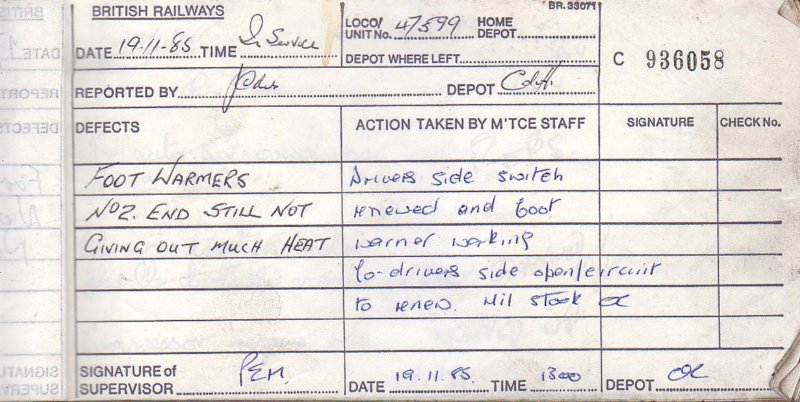 BRITISH RAILWAYS
BR.33071
DATE 19-11-85 TIME In Service
LOCO/ UNIT No. 47599 HOME DEPOT
DEPOT WHERE LEFT
C 936058
REPORTED BY DEPOT
DEFECTS ACTION TAKEN BY M'TCE STAFF SIGNATURE CHECK No.
FOOT WARMERS Drivers side switch
No2. END STILL NOT renewed and foot
GIVING OUT MUCH HEAT warmer working
Co-drivers side open/circuit
to renew. Nil stock OC
SIGNATURE of SUPERVISOR P.E.M. DATE 19.11.85. TIME 1300 DEPOT OC